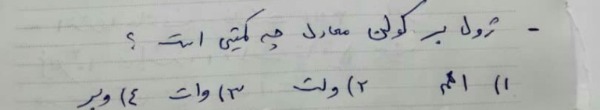 - ژول بر کولن معادل چه کمیتی است ؟
۱) اهم ۲) ولت ۳) وات ۴) وبر